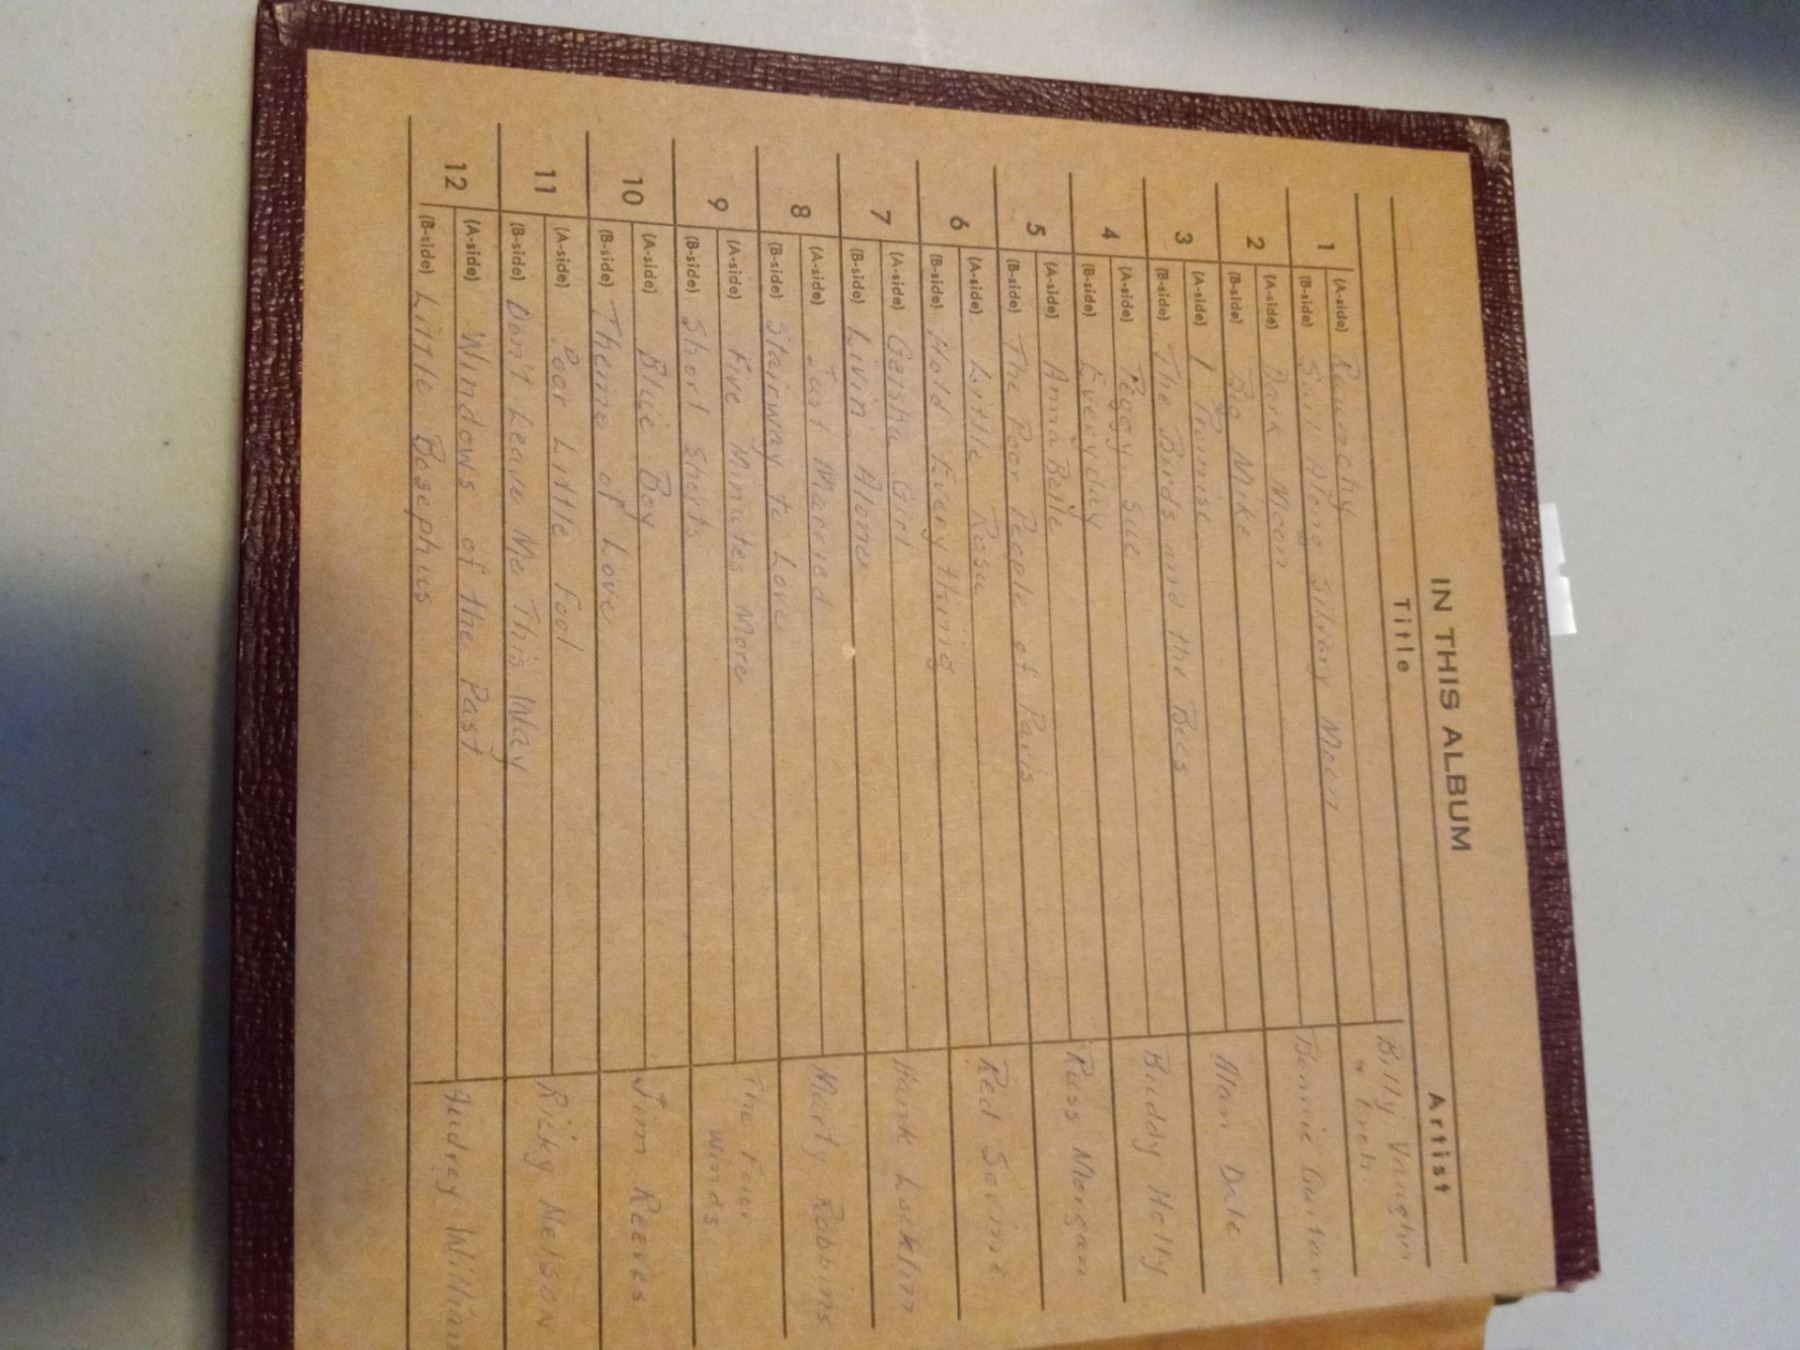 IN THIS ALBUM
Title Artist
1 (A-side) Raunchy Billy Vaughn
(B-side) Sail Along Silvery Moon " Orch.
2 (A-side) Dark Moon Bonnie Guitar
(B-side) Big Mike
3 (A-side) I Promise Alan Dale
(B-side) The Birds and the Bees
4 (A-side) Peggy Sue Buddy Holly
(B-side) Everyday
5 (A-side) Anna Belle Russ Morgan
(B-side) The Poor People of Paris
6 (A-side) Little Rosa Red Sovine
(B-side) Hold Everything
7 (A-side) Geisha Girl Hank Locklin
(B-side) Livin' Alone
8 (A-side) Just Married Marty Robbins
(B-side) Stairway to Love
9 (A-side) Five Minutes More The Four
(B-side) Short Shorts Winds
10 (A-side) Blue Boy Jim Reeves
(B-side) Theme of Love
11 (A-side) Poor Little Fool Ricky Nelson
(B-side) Don't Leave Me This Way
12 (A-side) Windows of the Past Audrey William
(B-side) Little Bosephus